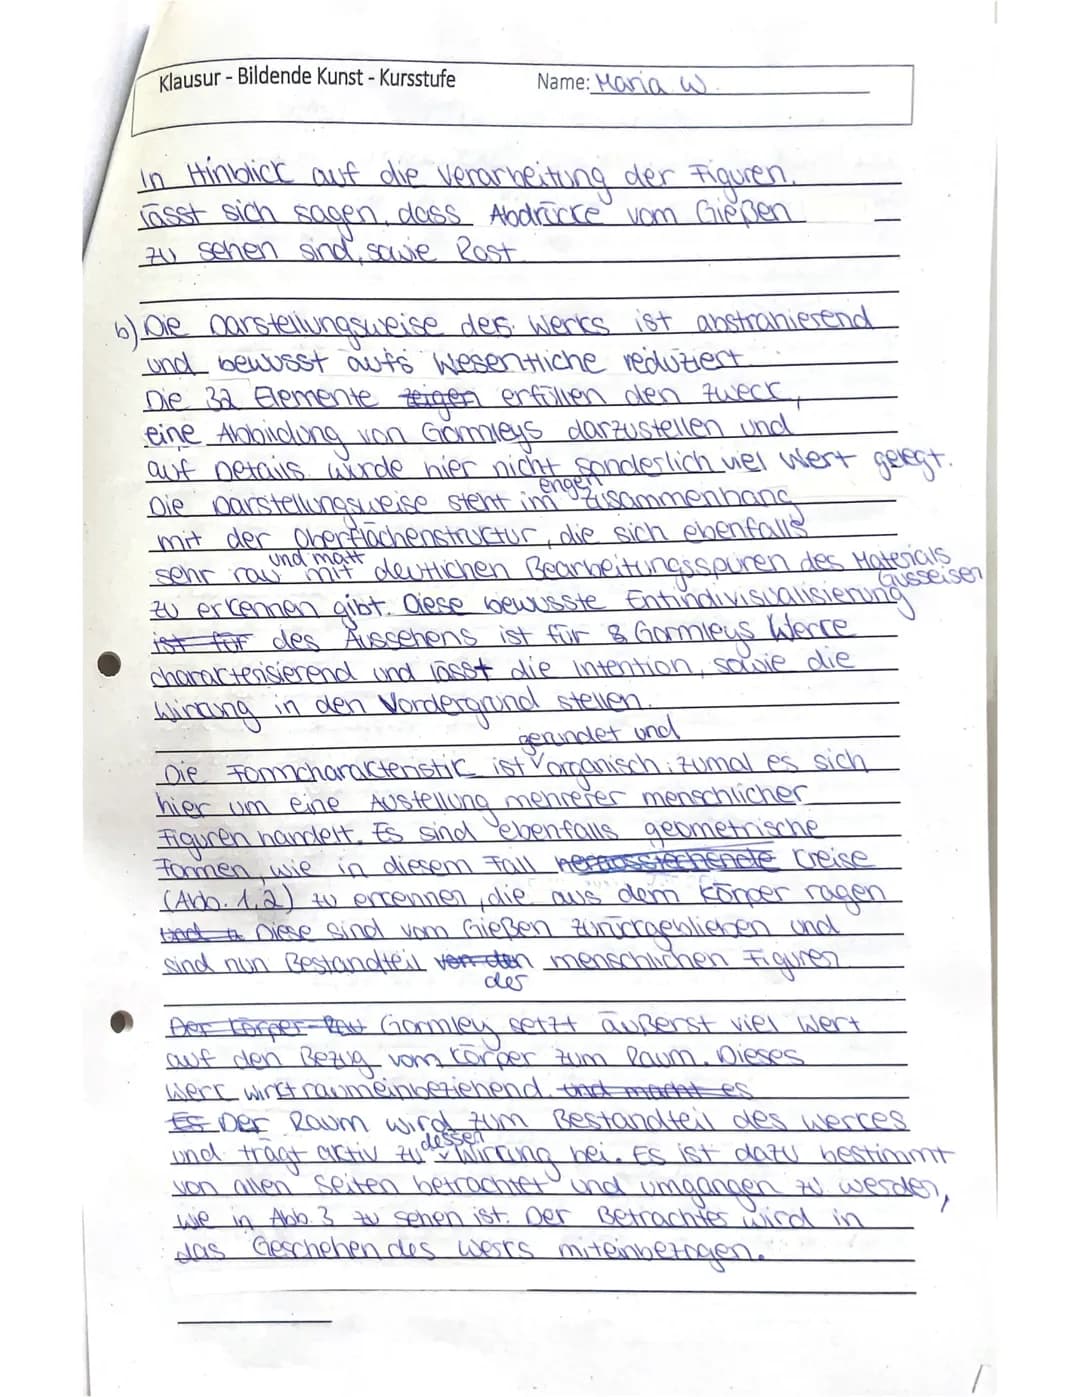 Klausur - Bildende Kunst - Kursstufe Name: Maria W.
In Hinblick auf die Verarbeitung der Figuren,
lässt sich sagen, dass Abdrücke vom Gießen
zu sehen sind, sowie Rost.
b) Die Darstellungsweise des Werks ist abstrahierend
und bewusst aufs Wesentliche reduziert.
Die 32 Elemente zeigen erfüllen den Zweck,
eine Abbildung von Gormleys darzustellen und
auf Details wurde hier nicht sonderlich viel Wert gelegt.
engen
Die Darstellungsweise steht im Zusammenhang
mit der Oberflächenstruktur, die sich ebenfalls
und matt
sehr rau mit deutlichen Bearbeitungsspuren des Materials
Gusseisen
zu erkennen gibt. Diese bewusste Entindivisualisierung
ist für des Aussehens ist für Gormleys Werke
charakterisierend und lässt die Intention, sowie die
Wirkung in den Vordergrund stellen.
gerundet und
Die Formcharakteristik ist organisch, zumal es sich
hier um eine Austellung mehrerer menschlicher
Figuren handelt. Es sind ebenfalls geometrische
Formen, wie in diesem Fall herausstechende Kreise
(Abb. 1,2) zu erkennen, die aus dem Körper ragen
Diese sind vom Gießen zurückgeblieben und
sind nun Bestandteil von den menschlichen Figuren
der
Der Körper-Rau Gormley setzt äußerst viel Wert
auf den Bezug vom Körper zum Raum. Dieses
Werk wirkt raumeinbeziehend. und macht es
Es Der Raum wird zum Bestandteil des Werkes
dessen
und trägt aktiv zu Wirkung bei. Es ist dazu bestimmt
von allen Seiten betrachtet und umgangen zu werden,
wie in Abb. 3 zu sehen ist. Der Betrachter wird in
das Geschehen des Werks miteinbezogen.